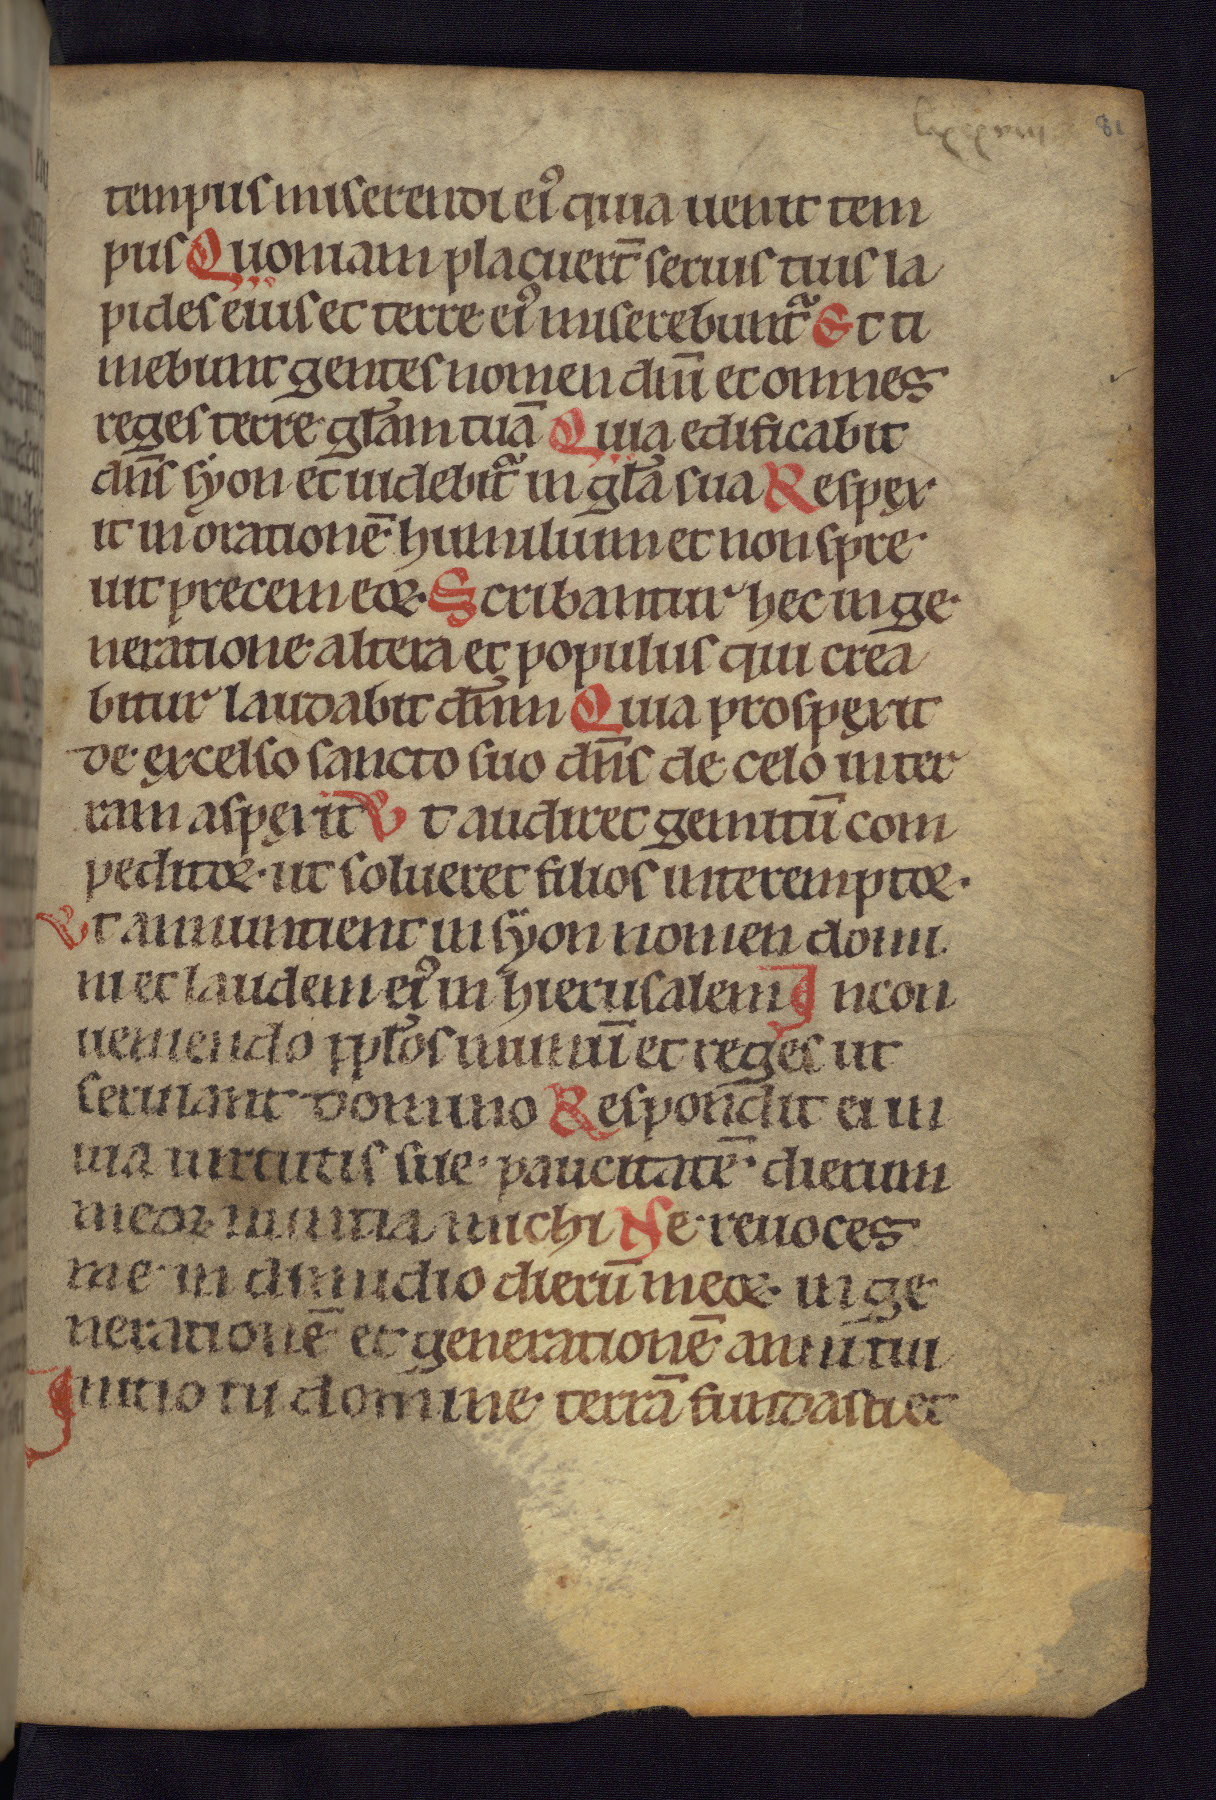 81
tempus miserendi ei᾽ quia uenit tem
pus Quoniam placuer̄t seruis tuis la
pides eiuis et terre ei᾽ miserebunt᷑ Et ti
mebunt gentes nomen dn̄i et omnes
reges terre gl̄am tuā Quia edificabit
dn̄s syon et uidebit᷑ in gl̄a sua Respex
it in orationē humilium et non spre
uit precem eoꝝ· Scribantur hec in ge
neratione altera et populus qui crea
bitur laudabit dn̄m Quia prospexit
de excelso sancto suo dn̄s de celo in ter
ram aspexit Vt audiret gemitū com
peditoꝝ· ut solueret filios interemptoꝝ·
Vt annuntient in syon nomen domi
ni et laudem ei᾽ in hierusalem In con
ueniendo ppl̄os in unū et reges ut
seruiant domino Respondit ei in
uia uirtutis sue· paucitatē· dierum
meoꝝ nuntia michi Ne reuoces
me in dimidio dierū meoꝝ· in ge
nerationē et generationē anni tui
Initio tu domine terrā fundasti et